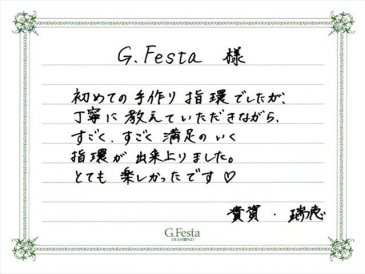 G.Festa 様
初めての手作り指環でしたが、
丁寧に教えていただきながら、
すごく、すごく満足のいく
指環が出来上りました。
とても楽しかったです♡
貴資・瑞恵
G.Festa
DIAMOND